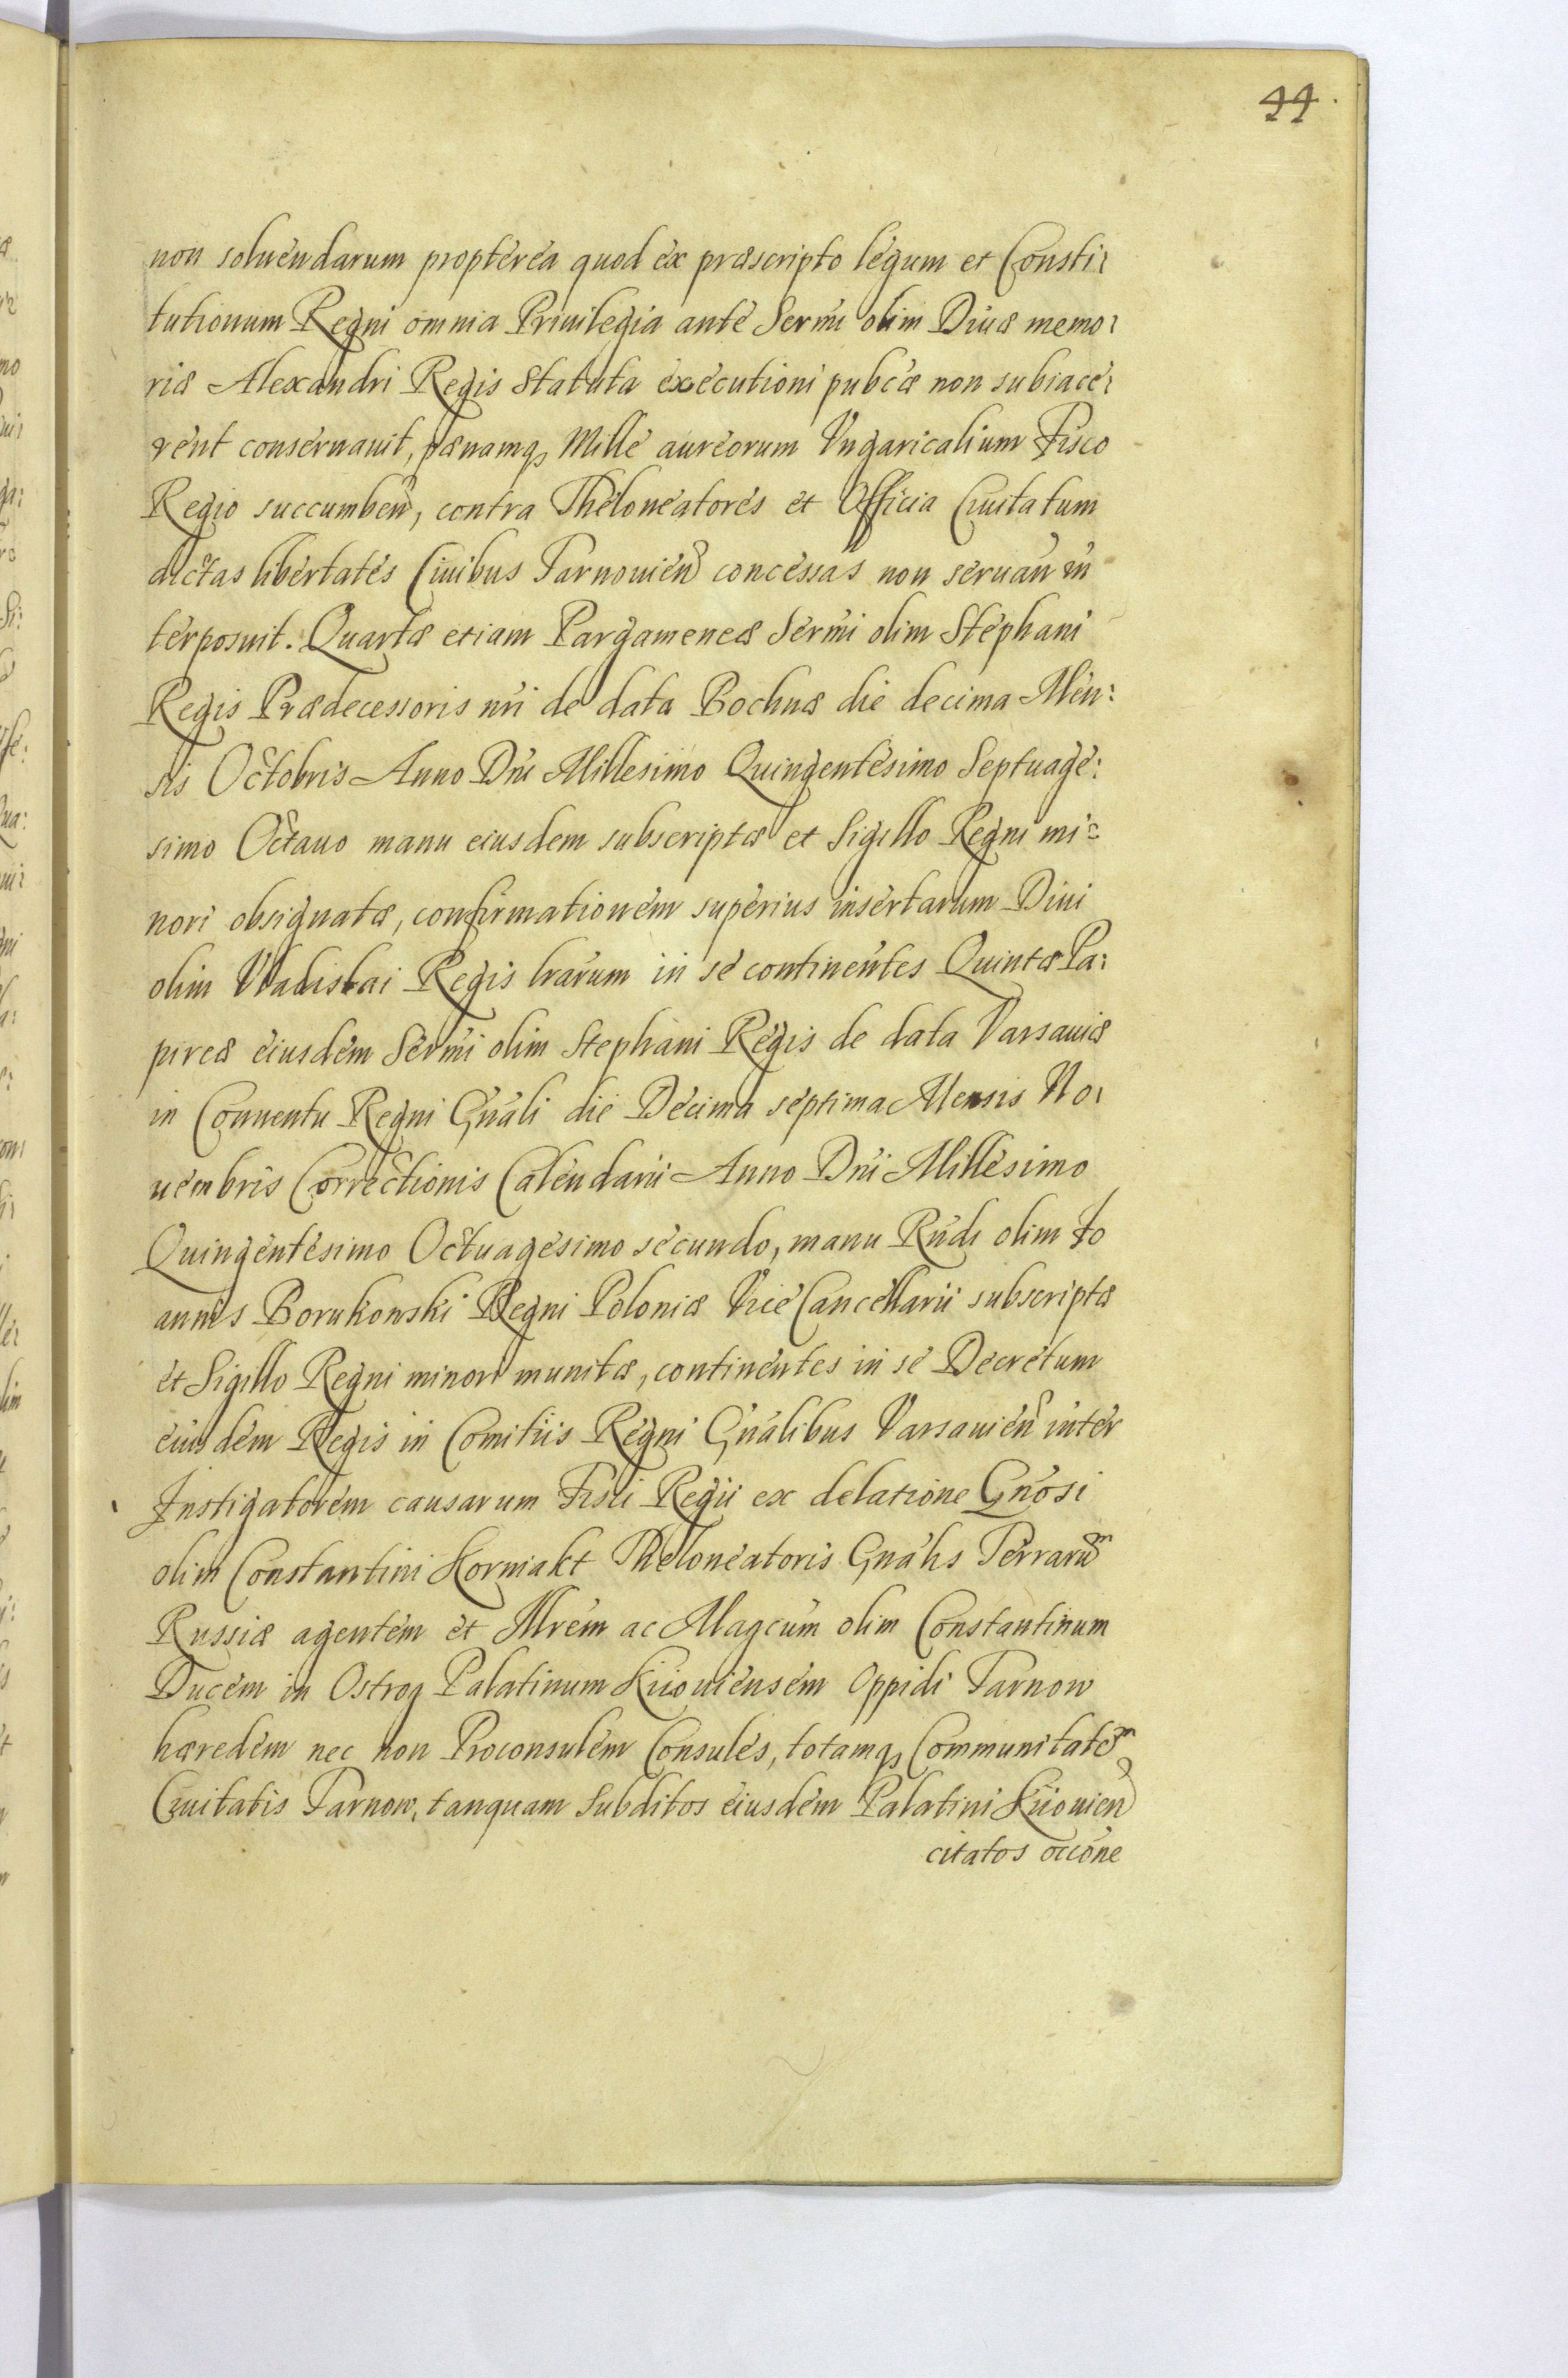 44.
non soluendarum propterea quod ex præscripto legum et Consti:
tutionum Regni omnia Priuilegia ante Sermi olim Diuæ memo:
riæ Alexandri Regis Statuta executioni pubcæ non subiace:
rent conseruauit, pænamq; Mille aureorum Vngaricalium Fisco
Regio succumben, contra Theloneatores et Officia Ciuitatum
dictas libertates Ciuibus Tarnouien concessas non seruan in
terposuit. Quartæ etiam Pargameneæ Sermi olim Stephani
Regis Prædecessoris nri de data Bochnæ die decima Men:
sis Octobris Anno Dni Millesimo Quingentesimo Septuage:
simo Octauo manu eiusdem subscriptæ et Sigillo Regni mi:
nori obsignatæ, confirmationem superius insertarum Diui
olim Vladislai Regis lrarum in se continentes Quintæ Pa:
pireæ eiusdem Sermi olim Stephani Regis de data Varsauiæ
in Conuentu Regni Gnali die Decima septima Mensis No:
uembris Correctionis Calendarii Anno Dni Millesimo
Quingentesimo Octuagesimo secundo, manu Rndi olim Io
annis Borukowski Regni Poloniæ Vice Cancellarii subscriptæ
et Sigillo Regni minori munitæ, continentes in se Decretum
eiusdem Regis in Comitiis Regni Gnalibus Varsauien inter
Instigatorem causarum Fisci Regii ex delatione Gnosi
olim Constantini Korniakt Theloneatoris Gnalis Terrarum
Russiæ agentem et Illrem ac Magcum olim Constantinum
Ducem in Ostrog Palatinum Kiiouiensem Oppidi Tarnow
hæredem nec non Proconsulem Consules, totamq; Communitatem
Ciuitatis Tarnow, tanquam Subditos eiusdem Palatini Kiiouien
citatos occone